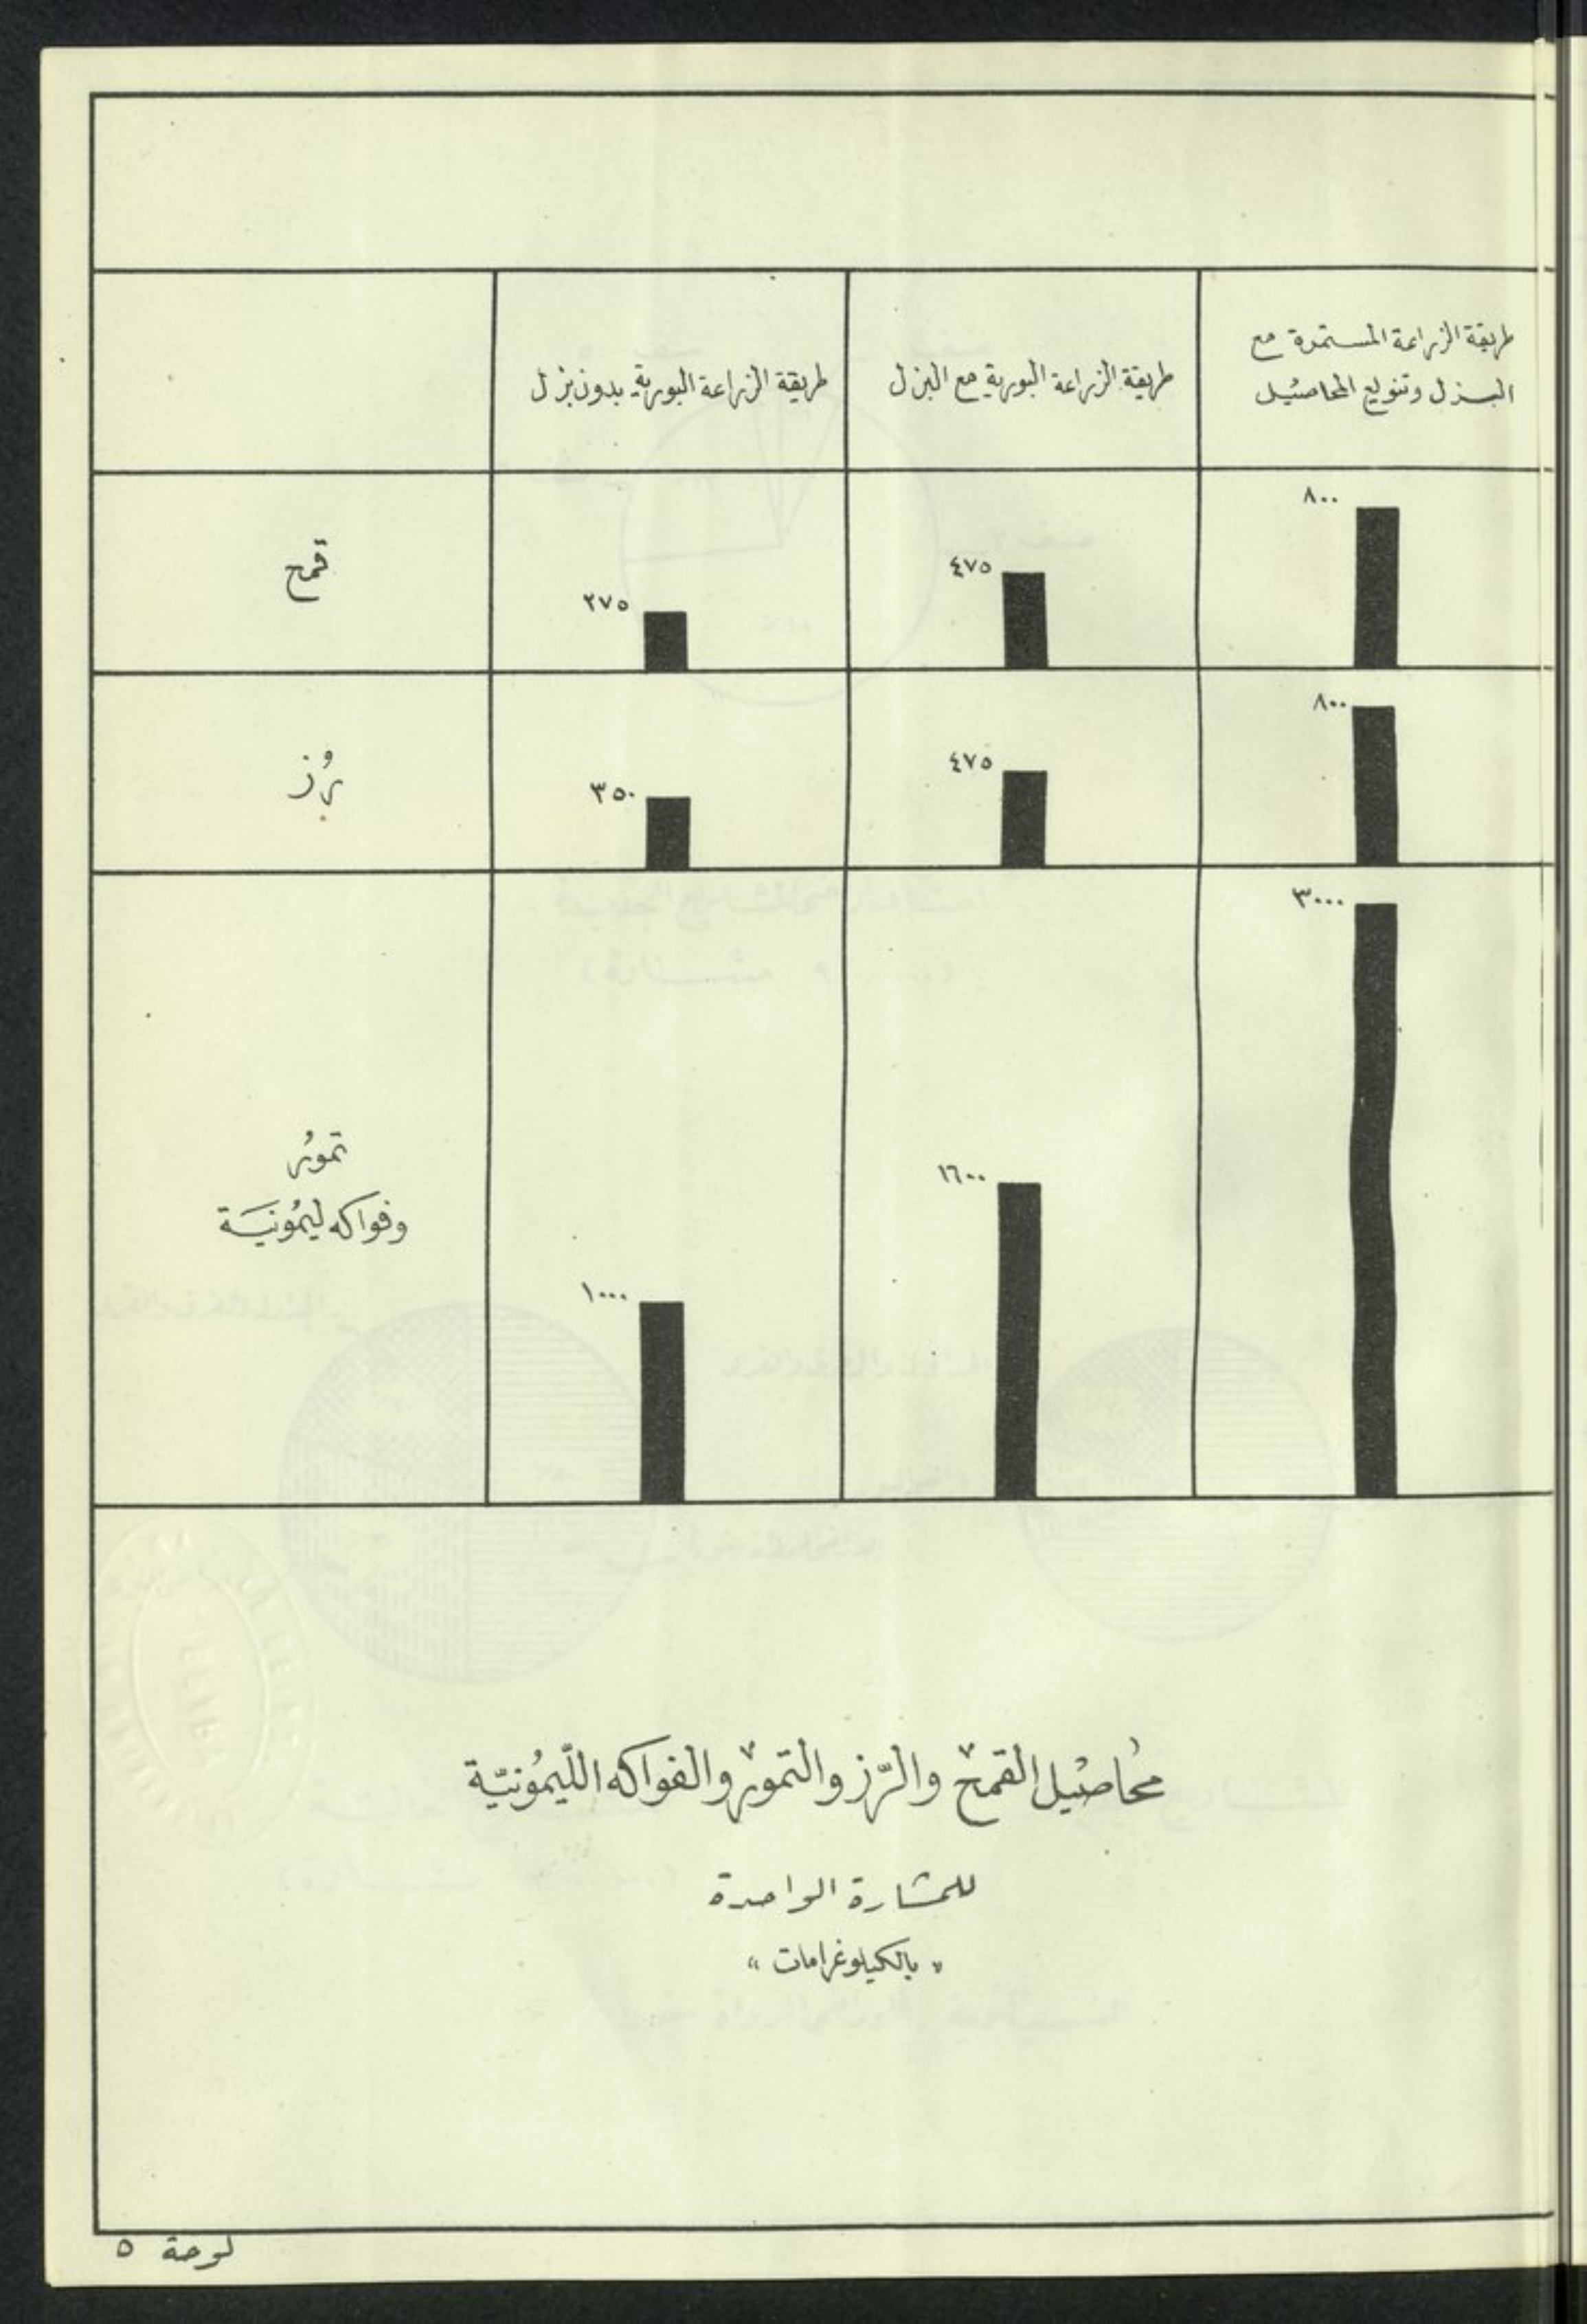 طريقة الزراعة المستمرة مع
البزل وتنويع المحاصيل
طريقة الزراعة البورية مع البزل
طريقة الزراعة البورية بدون بزل
٨٠٠
٤٧٥
٢٧٥
قمح
٨٠٠
٤٧٥
٣٥٠
رُز
٣٠٠٠
١٦٠٠
١٠٠٠
تمورُ
وفواكه ليمُونيَة
محُاصيْل القمحْ والرّز والتمورْ والفواكه اللّيمُونيّة
للمشارة الواحدة
« بالكيلوغرامات »
لوحة ٥